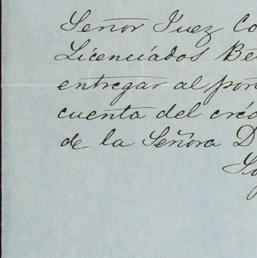 Señor Juez Co
Licenciados Be
entregar al por
cuenta del créd
de la Señora D